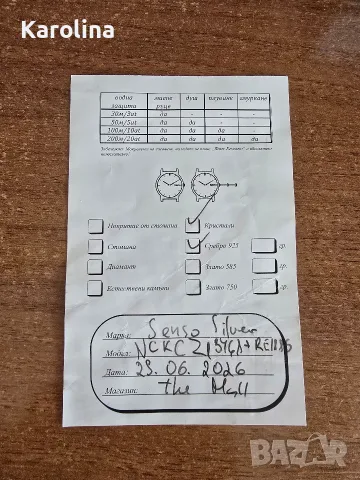 Karolina
водна защита миене ръце душ плуване гмуркане
30м/3at да - - -
50м/5at да да - -
100м/10at да да да -
200м/20at да да да да
Стомана
Кристали
Сребро 925 гр.
Диамант
Злато 585 гр.
Естествени камъни
Злато 750 гр.
Марка: Senso Silver
Модел: NCKCZ
Дата: 23.06.2026
Магазин: The Mall
BAZAR
bg